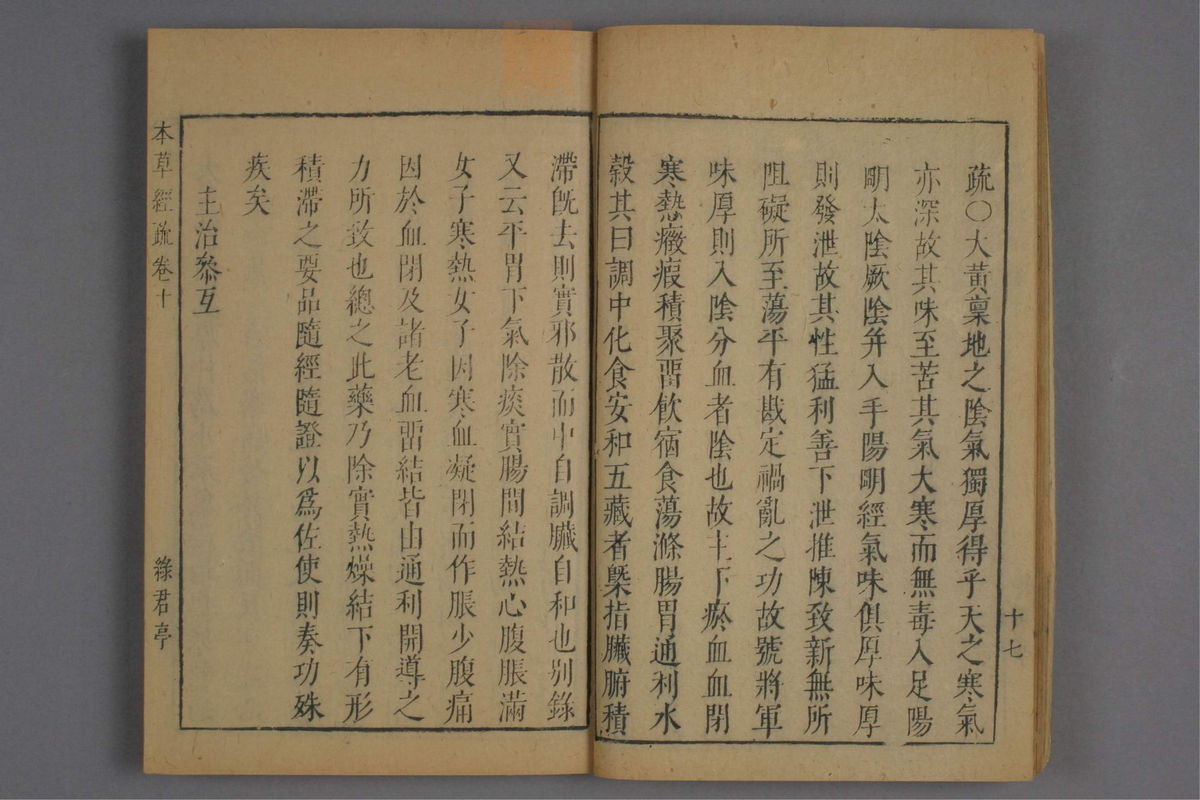 疏○大黃稟地之陰氣獨厚得乎天之寒氣
亦深故其味至苦其氣大寒而無毒入足陽
明太陰厥陰幷入手陽明經氣味俱厚味厚
則發泄故其性猛利善下泄推陳致新無所
阻礙所至蕩平有戡定禍亂之功故號將軍
味厚則入陰分血者陰也故主下瘀血血閉
寒熱癥瘕積聚畱飲宿食蕩滌腸胃通利水
穀其曰調中化食安和五藏者槩指臟腑積
十七
滯旣去則實邪散而中自調臟自和也别錄
又云平胃下氣除痰實腸間結熱心腹脹滿
女子寒熱女子因寒血凝閉而作脹少腹痛
因於血閉及諸老血畱結皆由通利開導之
力所致也總之此藥乃除實熱燥結下有形
積滯之要品隨經隨證以爲佐使則奏功殊
疾矣
主治叅互
本草經疏卷十
綠君亭